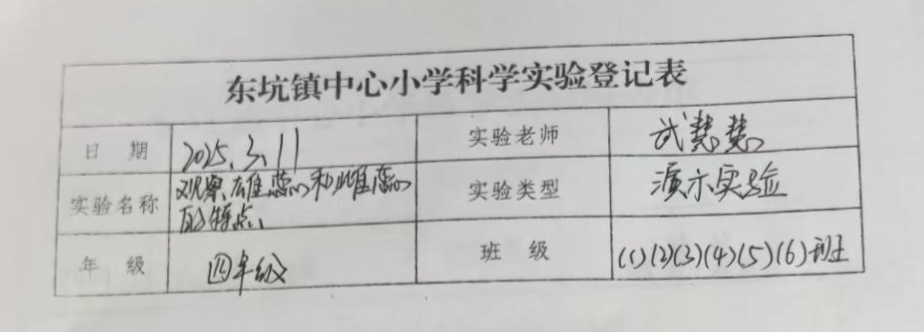 东坑镇中心小学科学实验登记表
日 期 2025.3.11 实验老师 武慧慧
实验名称 观察雄蕊和雌蕊的特点 实验类型 演示实验
年 级 四年级 班 级 (1)(2)(3)(4)(5)(6)班